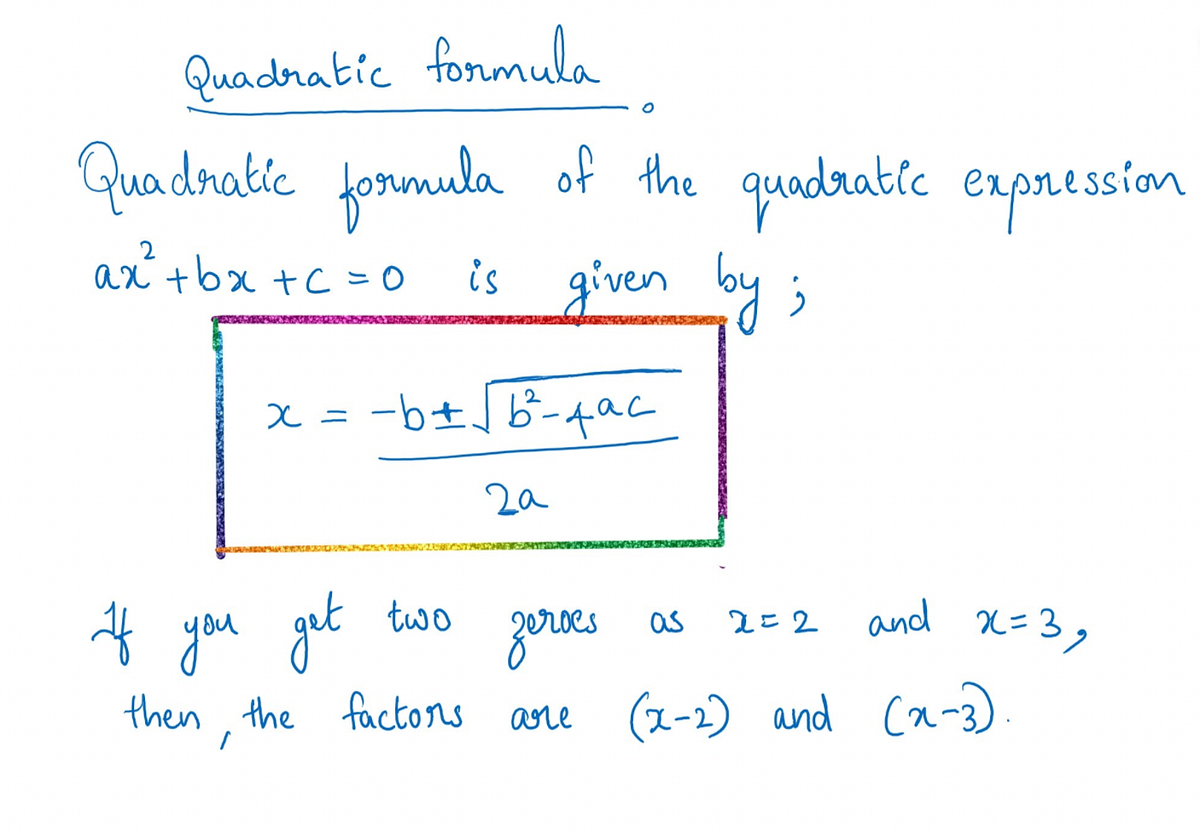 Quadratic formula.
Quadratic formula of the quadratic expression
ax²+bx+c=0 is given by;
x = -b±√b²-4ac
2a
If you get two zeroes as x=2 and x=3,
then, the factors are (x-2) and (x-3).